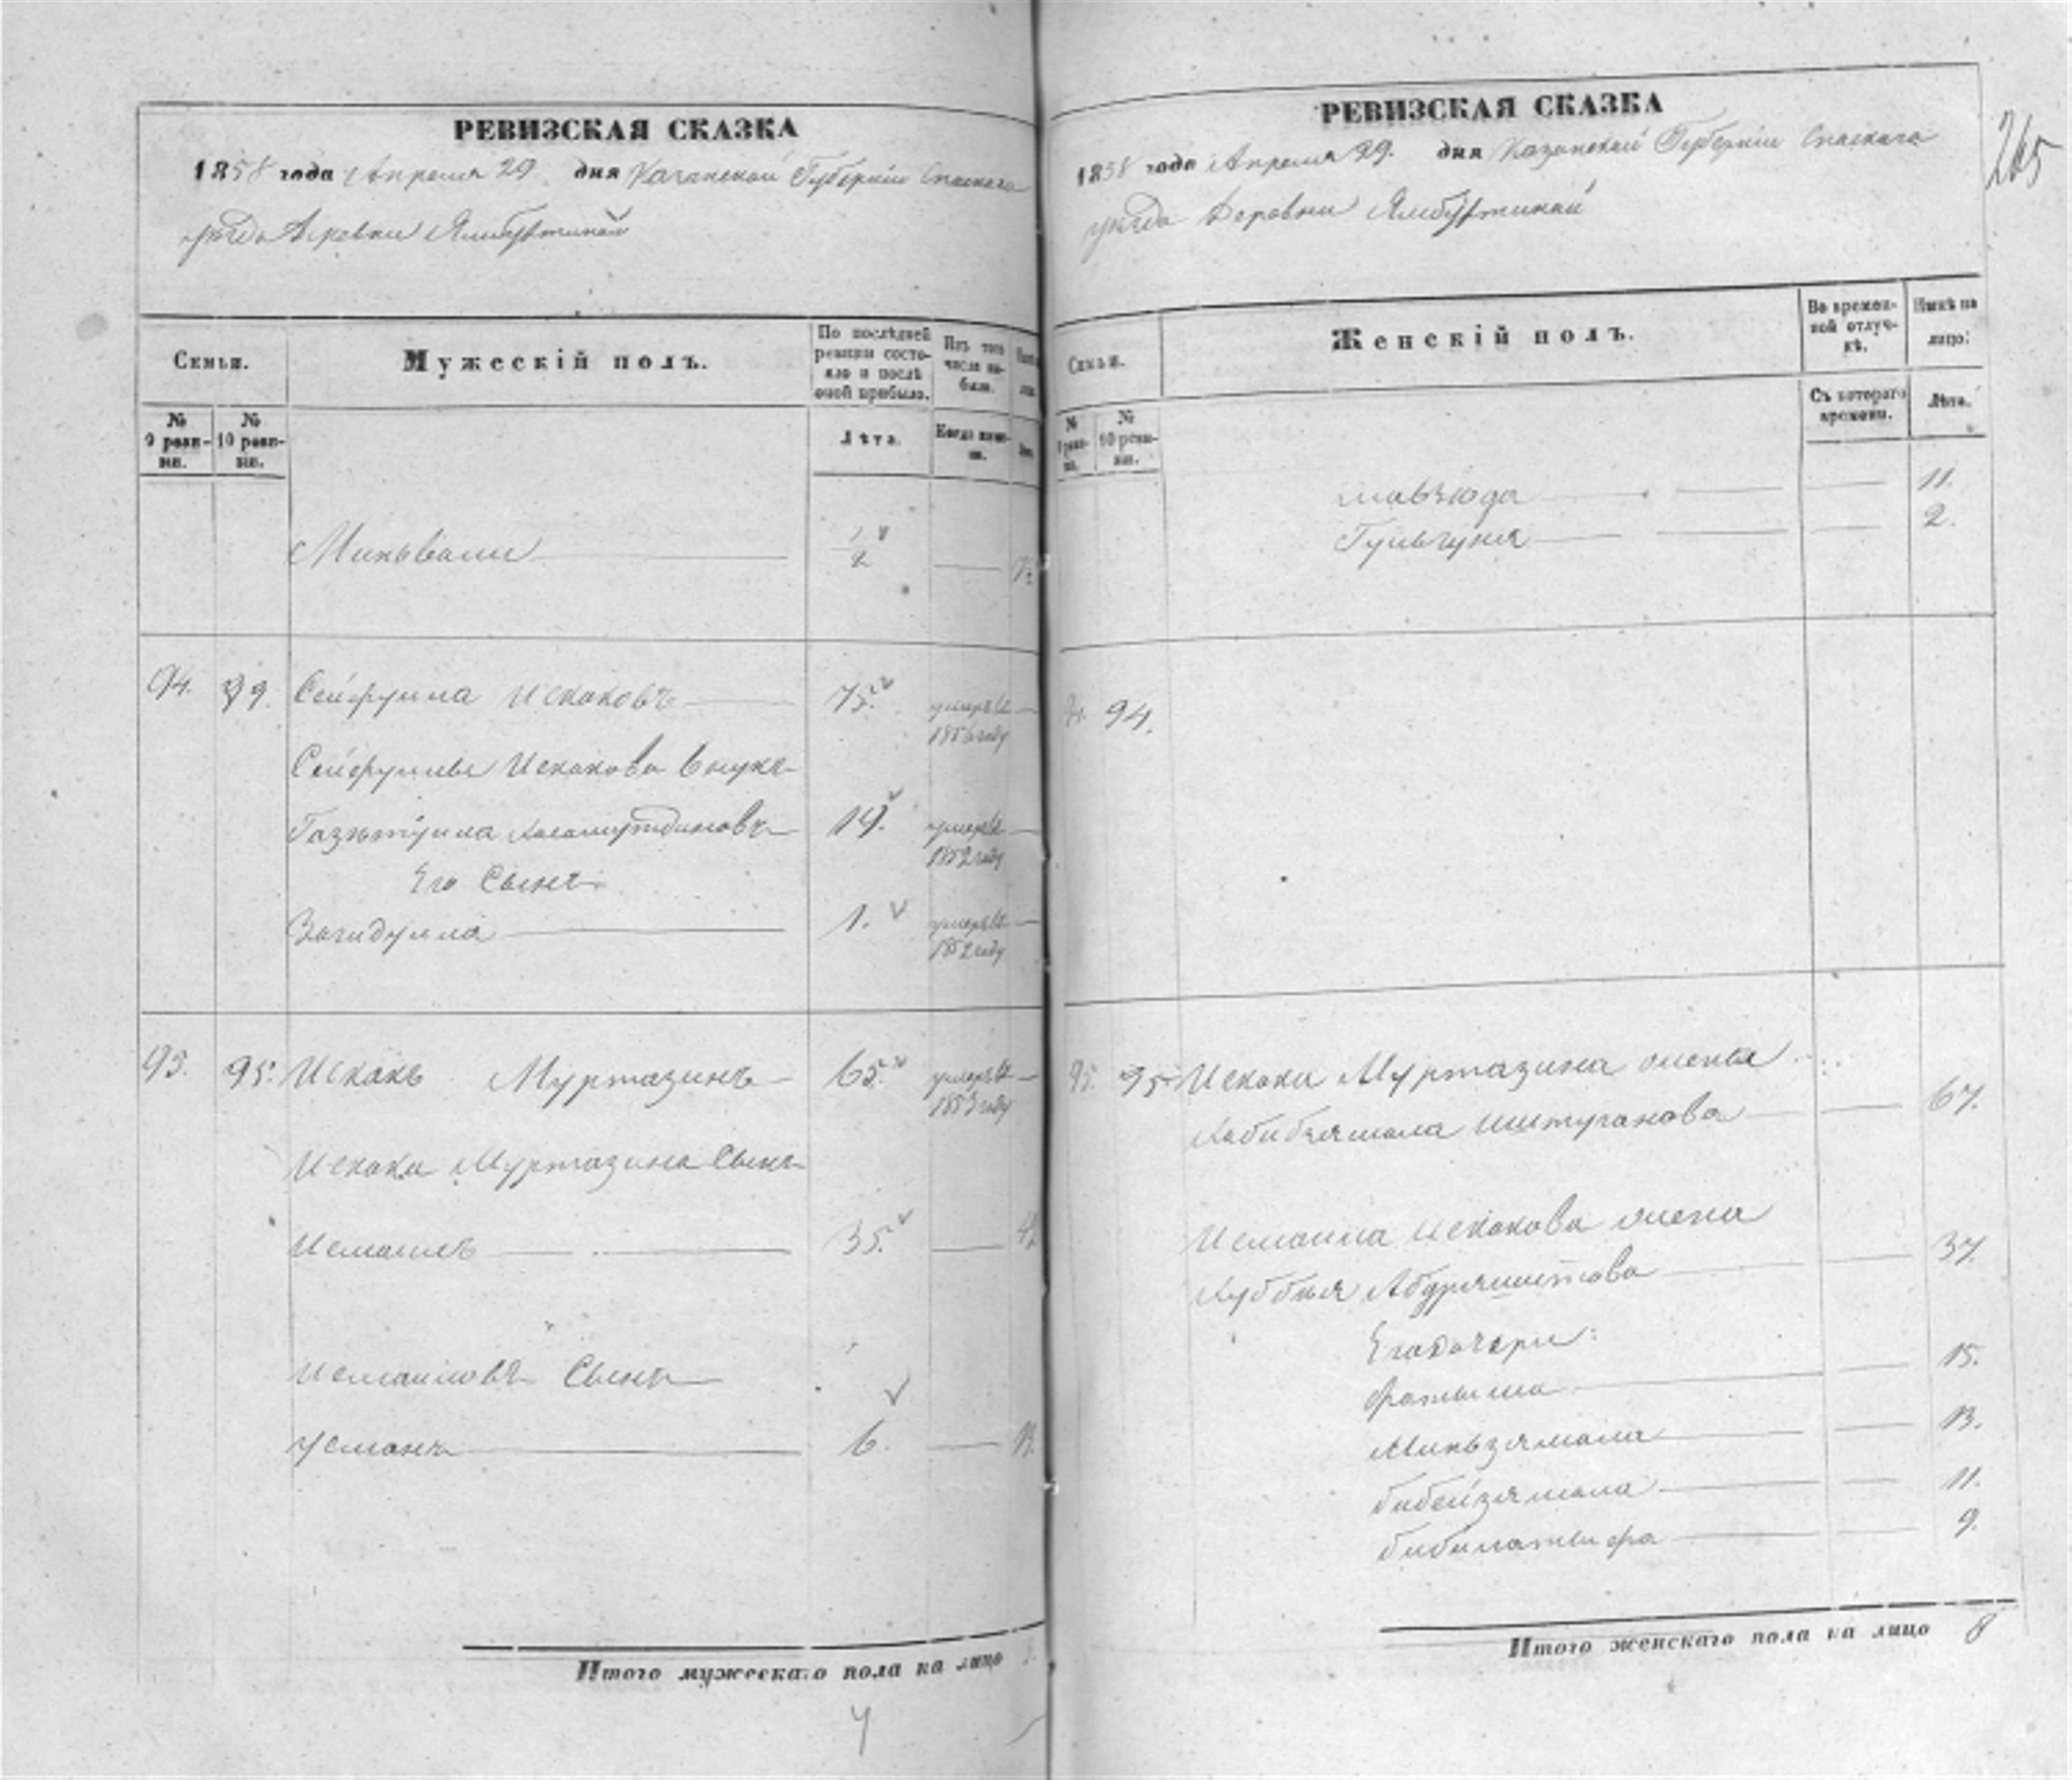 РЕВИЗСКАЯ СКАЗКА
1858 года Апреля 29 дня Казанской Губерніи Спаскаго
уѣзда Деровни Ямбухтиной
Семьи.
Мужескій полъ.
По послѣдней ревизіи состояло и послѣ оной прибыло.
Изъ того числа выбыло.
№ 9 ревизіи.
№ 10 ревизіи.
Лѣта.
Когда именно.
Миньвали 1/2
94. 99. Сейфулла Искаковъ 75. умеръ въ 1856 году
Сейфуллы Искакова внукъ
19. умеръ въ 1852 году
Его Сынъ
Загидулла 1. умеръ въ 1852 году
95. 95. Искакъ Муртазинъ 65. умеръ въ 1853 году
Искака Муртазина Сынъ
Исмаилъ 35.
Исмаиловъ Сынъ
Усманъ 6.
Итого мужескаго пола на лицо
РЕВИЗСКАЯ СКАЗКА
1858 года Апреля 29. дня Казанской Губерніи Спаскаго
уѣзда Деровни Ямбухтиной
265
Семьи.
Женскій полъ.
Во временной отлучкѣ.
Нынѣ на лицо.
№ 9 ревизіи.
№ 10 ревизіи.
Съ котораго времени.
Лѣта.
11.
2.
94.
95. 95. Искака Муртазина жена
Хабибзямала Иштуганова 67.
Исмаила Искакова жена
Абдряшитова 37.
Его дочери:
Фатыма 15.
Миньзямала 13.
Бибейзямала 11.
9.
Итого женскаго пола на лицо 8